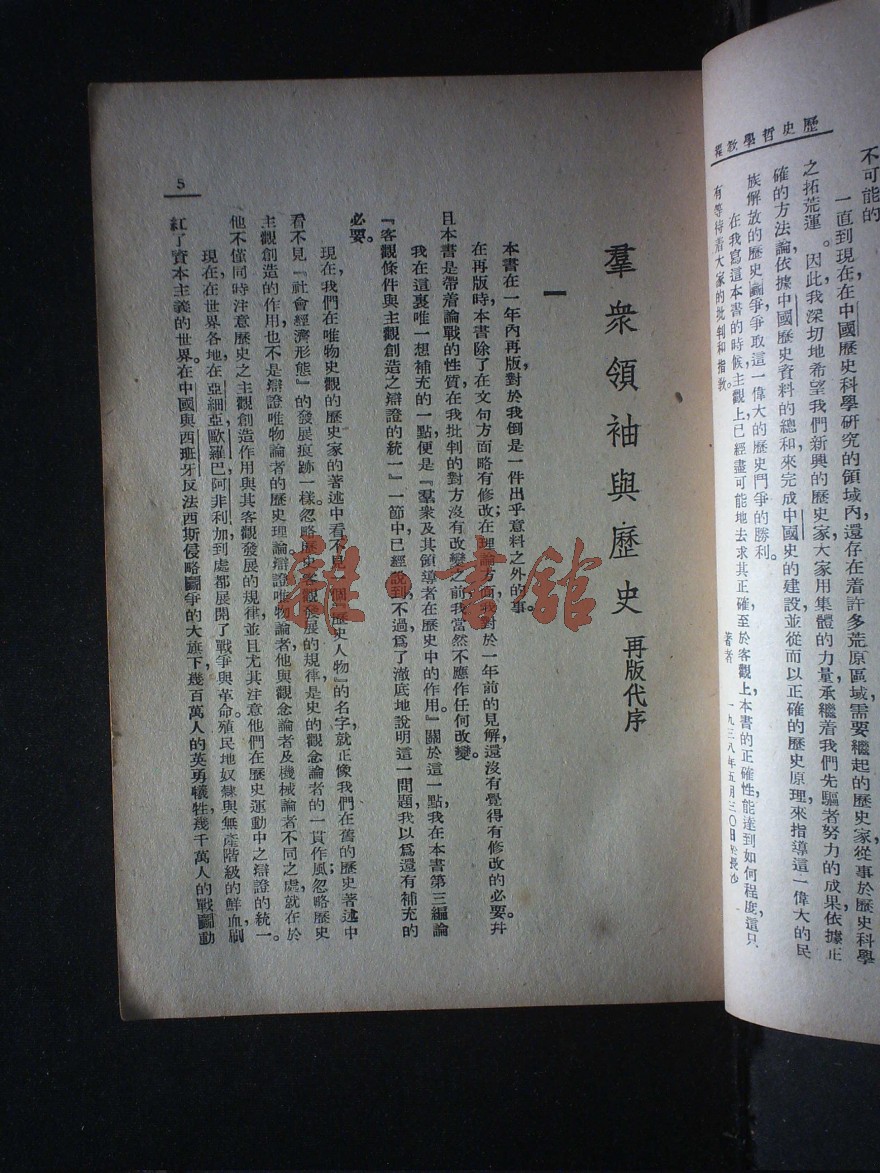 歷史哲學教程
不可能的
一直到現在在中國歷史科學研究的領域內，還存在着許多荒原區域，需要繼起的歷史家從事於歷史科學
之拓荒運。因此，我深切地希望我們新興的歷史家，大家用集體的力量，承繼着我們先驅者努力的成果，依據正
確的方法論，依據中國歷史資料的總和，來完成中國史的建設，並從而以正確的歷史原理，來指導這一偉大的民
族解放的歷史鬭爭，爭取這一偉大的歷史鬥爭的勝利。
在我寫這本書的時候，主觀上，已經盡可能地去求其正確，至於客觀上，本書的正確性，能達到如何程度，這只
有等待着大家的批判和指教。
著者　一九三八年五月三〇日於長沙
羣衆領袖與歷史　再版代序
一
本書在一年內再版，對於我倒是一件出乎意料之外的事。
在再版時，本書除了在文句方面略有修改；在理論方面，我對於一年前的見解，還沒有覺得有修改的必要。幷
且本書是帶着論戰的性質，在我批判的對方沒有改變之前，我當然不應作任何改變。
我在這裏唯一想補充的一點，便是『羣衆及其領導者在歷史中的作用』關於這一點，我在本書第三編論
『客觀條件與主觀創造之辯證的統一』一節中已經說到，不過爲了澈底地說明這一問題，我以爲還有補充的
必要。
現在，我們在唯物史觀的歷史家的著述中，看不見一個『歷史人物』的名字，就正像我們在舊的歷史著述中
看不見『社會經濟形態』的發展痕跡一樣。忽略歷史客觀發展的規律，是史的觀念論者的一貫作風；忽略歷史
主觀創造的作用，也不是辯證唯物論者的歷史理論。辯證唯物論者他與觀念論者及機械論者不同之處，就在於
他不僅同時注意歷史之主觀創造作用與其客觀發展的規律，並且尤其注意他們在歷史運動中之辯證的統一。
現在，在世界各地，在亞細亞，歐羅巴，阿非利加，到處都展開了戰爭與革命，殖民地奴隸與無產階級的鮮血，刷
紅了資本主義的世界。在中國與西班牙反法西斯侵略鬭爭的大旗下，幾百萬人的英勇犧牲，幾千萬人的戰鬭動
5
雜·書館